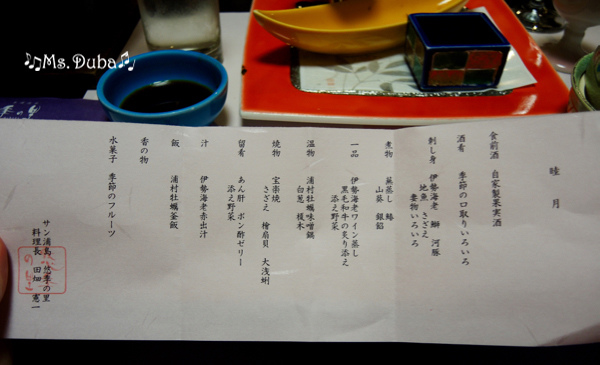 ♪♫Ms.Duba♪♫
睦月
食前酒 自家製果実酒
酒肴 季節の口取りいろいろ
刺し身 伊勢海老 鰤 河豚
地魚 さざえ
妻物いろいろ
煮物 蕪蒸し 鰆
山葵 銀餡
一品 伊勢海老ワイン蒸し
黒毛和牛の炙り添え
添え野菜
温物 浦村牡蠣味噌鍋
白葱 榎木
焼物 宝楽焼
さざえ 檜扇貝 大浅蜊
留肴 あん肝 ポン酢ゼリー
添え野菜
汁 伊勢海老赤出汁
飯 浦村牡蠣釜飯
香の物
水菓子 季節のフルーツ
サン浦島 悠季の里
料理長 田畑 憲一